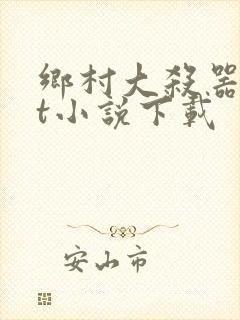 鄉村大殺器
t小說下載
安山市